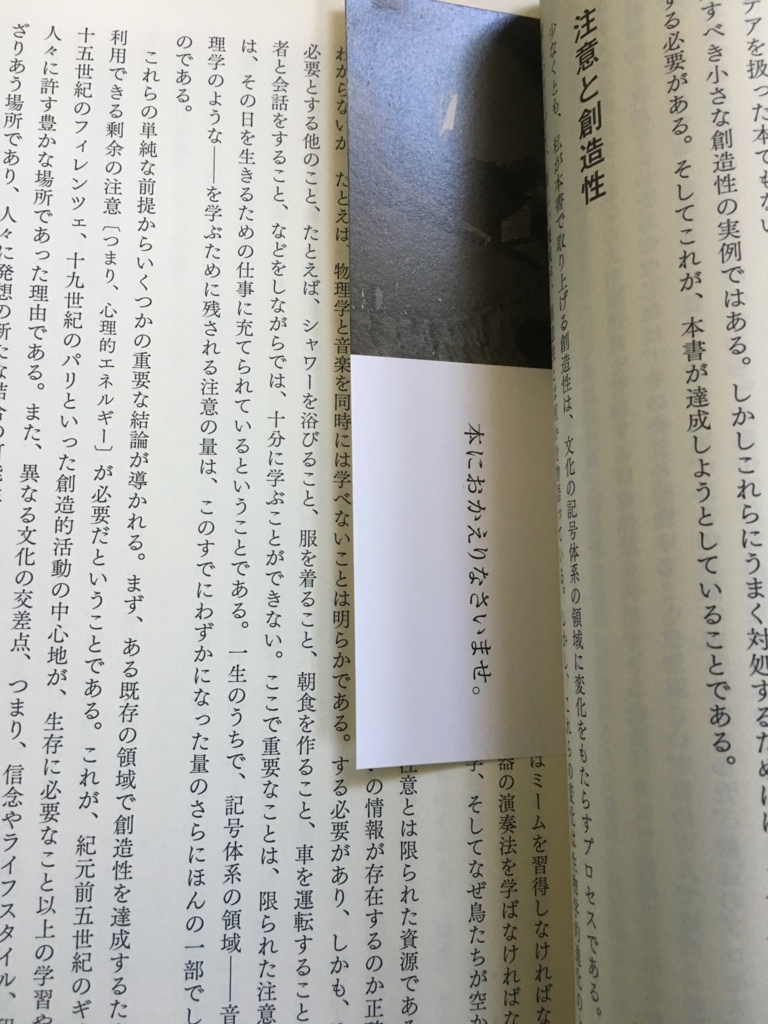 デアを扱った本でもない
すべき小さな創造性の実例ではある。しかしこれらにうまく対処するためには
する必要がある。そしてこれが、本書が達成しようとしていることである。
注意と創造性
少なくとも、私が本書で取り上げる創造性は、文化の記号体系の領域に変化をもたらすプロセスである。
しかし、これらの変化は生物学的進化の
はミームを習得しなければな
器の演奏法を学ばなければな
そしてなぜ鳥たちが空か
本におかえりなさいませ。
注意とは限られた資源であ
の情報が存在するのか正確
わからないが、たとえば、物理学と音楽を同時には学べないことは明らかである。する必要があり、しかも、
必要とする他のこと、たとえば、シャワーを浴びること、服を着ること、朝食を作ること、車を運転すること
者と会話をすること、などをしながらでは、十分に学ぶことができない。ここで重要なことは、限られた注意
は、その日を生きるための仕事に充てられているということである。一生のうちで、記号体系の領域――音
理学のような――を学ぶために残される注意の量は、このすでにわずかになった量のさらにほんの一部でし
のである。
これらの単純な前提からいくつかの重要な結論が導かれる。まず、ある既存の領域で創造性を達成するた
利用できる剰余の注意〔つまり、心理的エネルギー〕が必要だということである。これが、紀元前五世紀のギ
十五世紀のフィレンツェ、十九世紀のパリといった創造的活動の中心地が、生存に必要なこと以上の学習や
人々に許す豊かな場所であった理由である。また、異なる文化の交差点、つまり、信念やライフスタイル、
ざりあう場所であり、人々に発想の新たな結合の可能